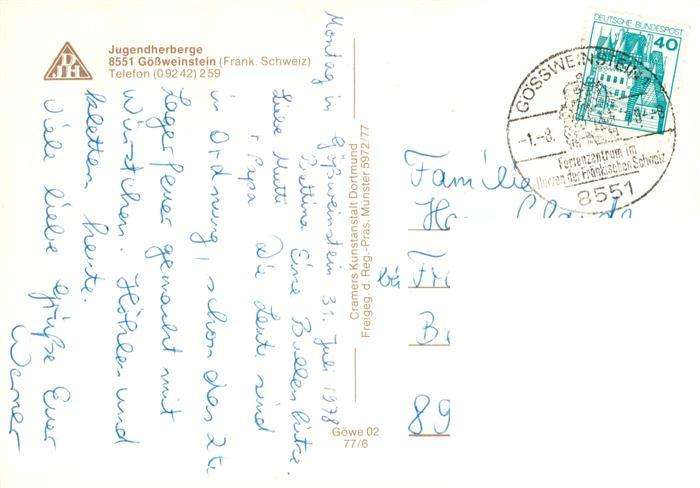 Jugendherberge
8551 Gößweinstein (Fränk. Schweiz)
Telefon (0 92 42) 2 59
Montag in Gößweinstein 31. Juli 1978
Bettina Eine Bullenhitze.
Liebe Mutti
+ Papa Die Leute sind
in Ordnung, schon das 2te
Lagerfeuer gemacht mit
Würstchen. Höhlen und
kletten heute.
Viele liebe Grüße Euer
Werner
Cramers Kunstanstalt Dortmund
Freigeg. d. Reg.-Präs. Münster 5972/77
Göwe 02
77/6
DEUTSCHE BUNDESPOST
40
GÖSSWEINSTEIN
-1.-8.
Ferienzentrum im
Herzen der Fränkischen Schweiz
8551
Familie
bei
89